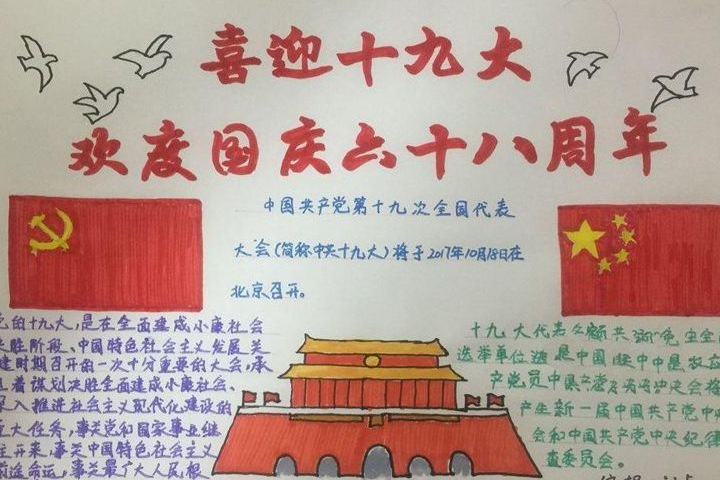 喜迎十九大
欢度国庆六十八周年
中国共产党第十九次全国代表
大会(简称中共十九大)将于2017年10月18日在
北京召开。
的十九大,是在全面建成小康社会
胜阶段、中国特色社会主义发展关
建时期召开的一次十分重要的大会,承
着谋划决胜全面建成小康社会、
入推进社会主义现代化建设的
大任务,事关党和国家事业继
开来,事关中国特色社会主义
前途命运,事关最广大人民根
十九大代表
选举单位
产党员中
产生新一届中国共产党中
会和中国共产党中央纪律
查委员会。